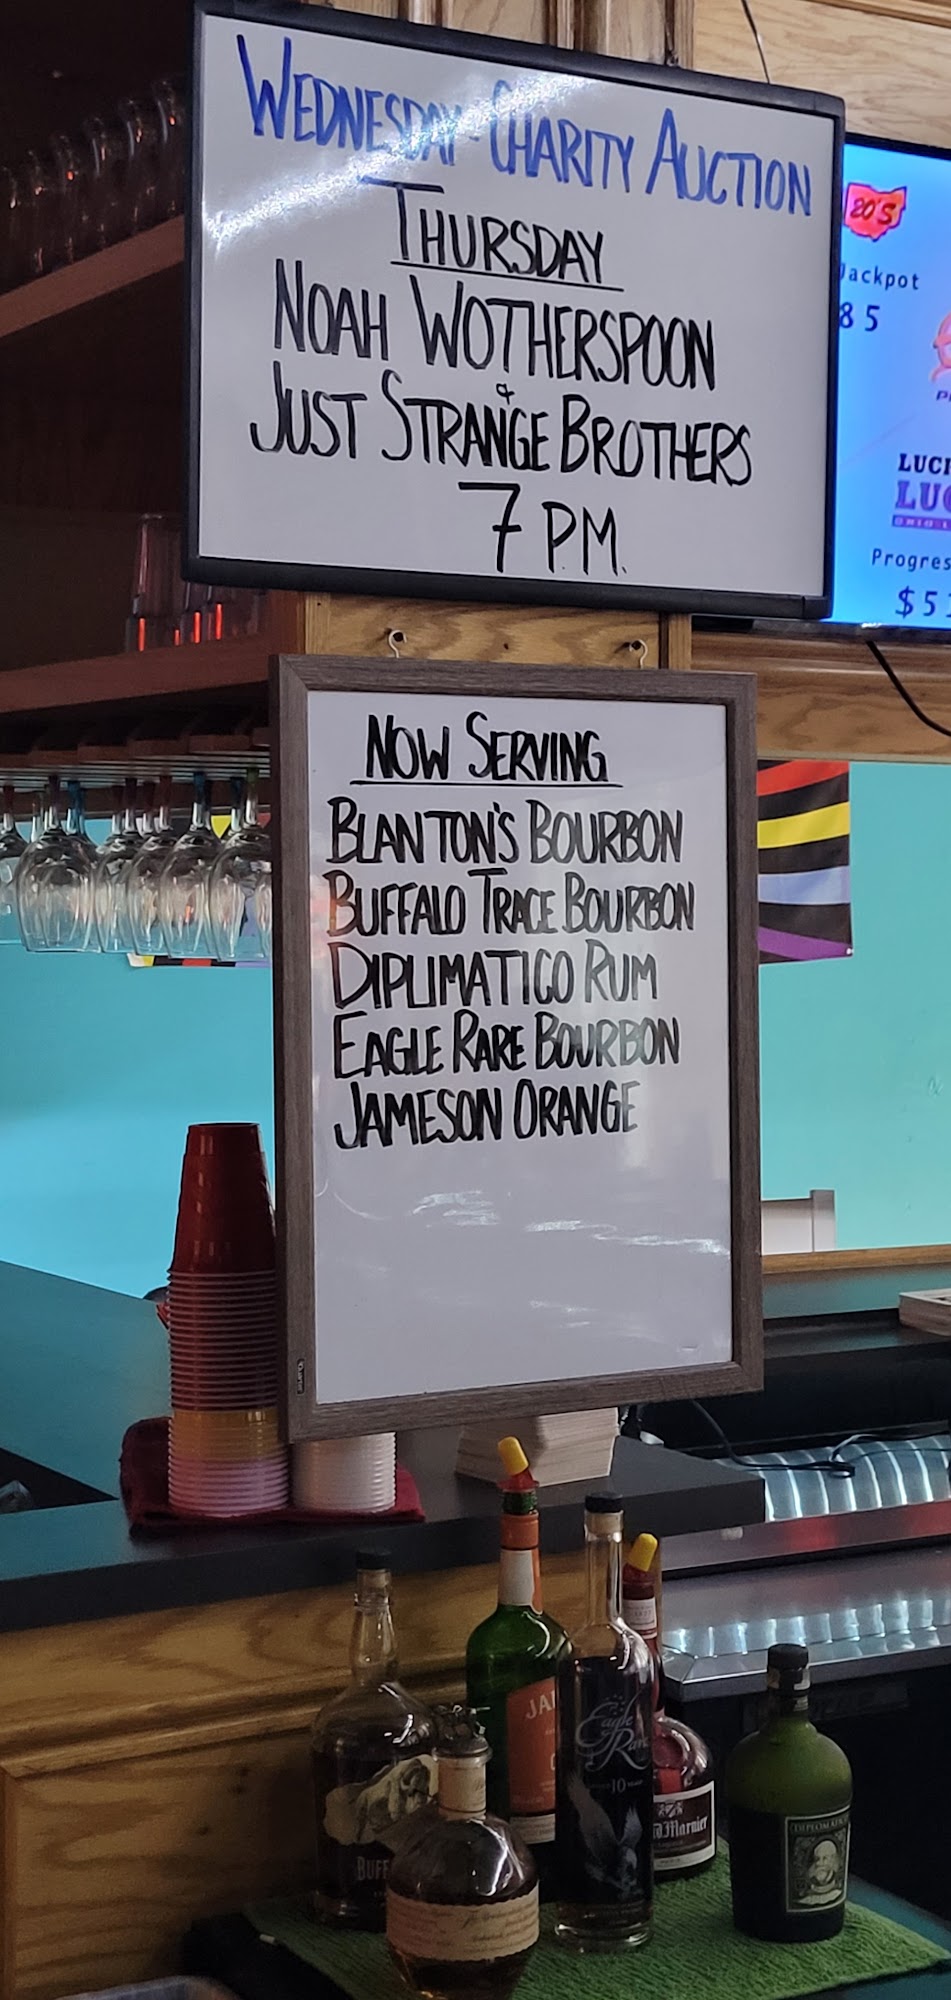 WEDNESDAY-CHARITY AUCTION
THURSDAY
NOAH WOTHERSPOON
&
JUST STRANGE BROTHERS
7 P.M.
20'S
Jackpot
85
LUC
Progres
$5
NOW SERVING
BLANTON'S BOURBON
BUFFALO TRACE BOURBON
DIPLIMATICO RUM
EAGLE RARE BOURBON
JAMESON ORANGE
JA
Eagle
Rare
10
BUFF
d Marnier
DIPLOMATI